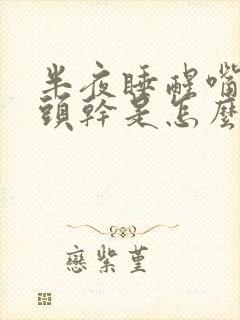 半夜睡醒嘴
頭幹是怎麼
戀紫堇